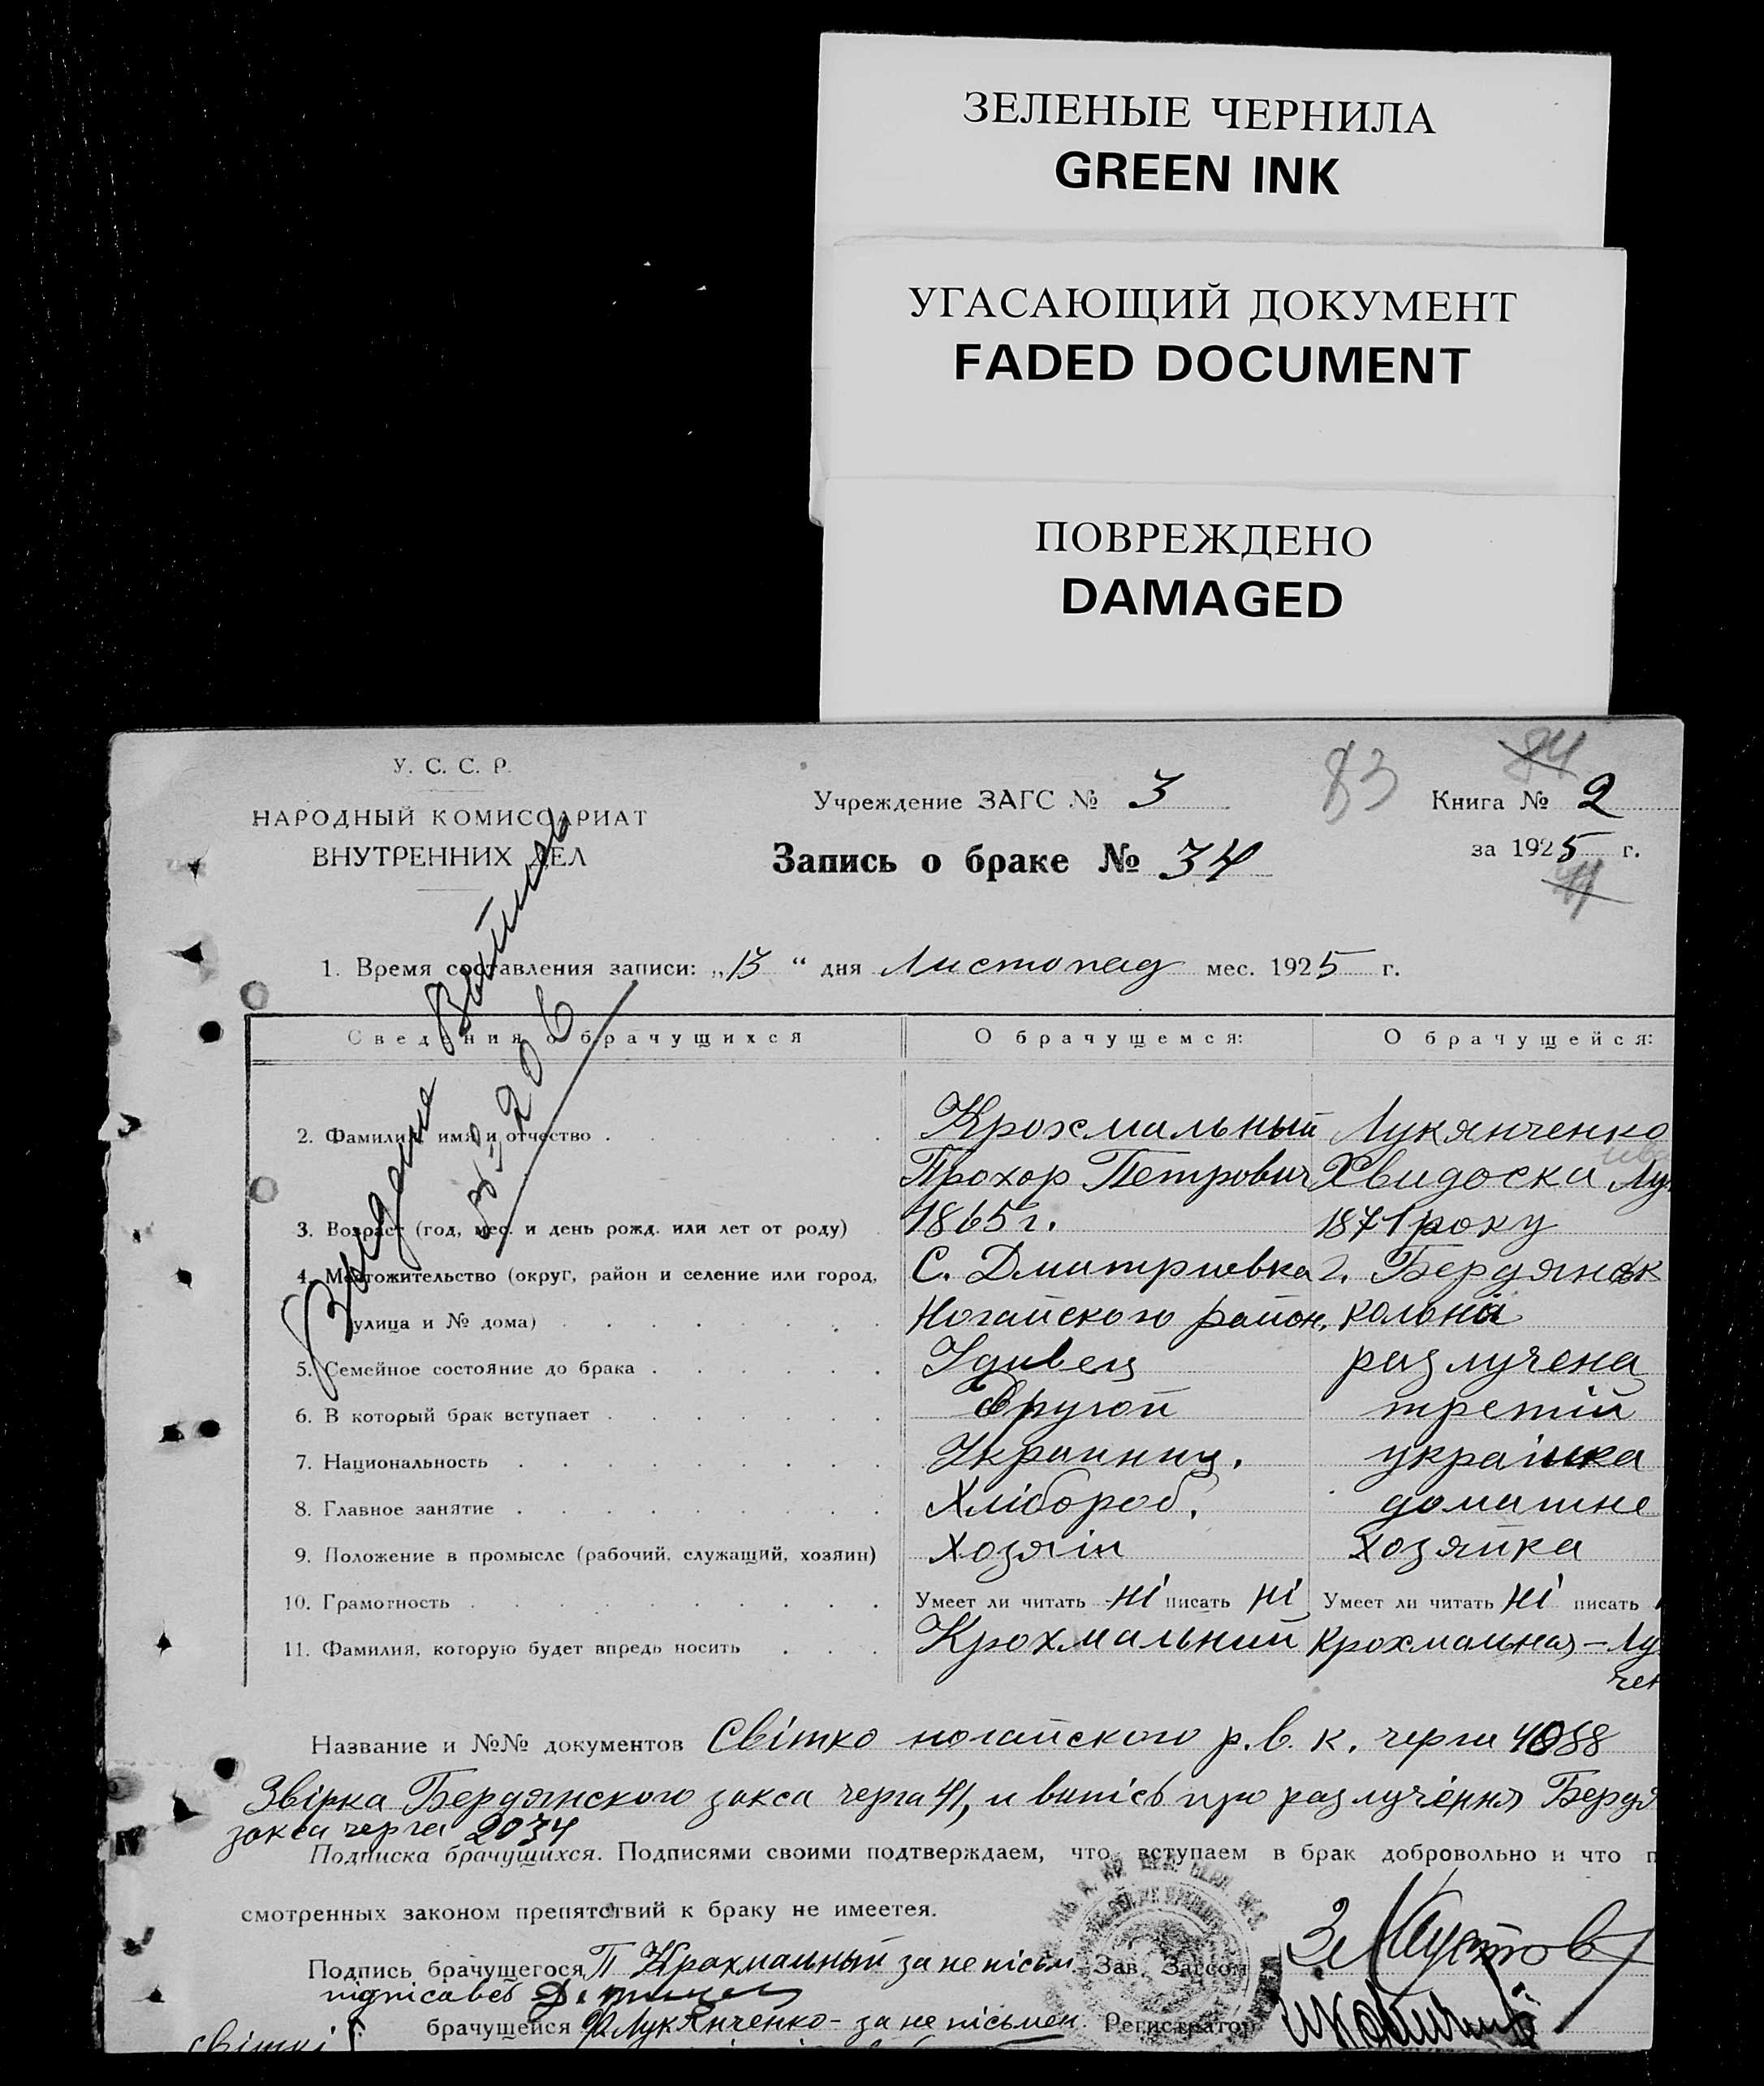 ЗЕЛЕНЫЕ ЧЕРНИЛА
GREEN INK
УГАСАЮЩИЙ ДОКУМЕНТ
FADED DOCUMENT
ПОВРЕЖДЕНО
DAMAGED
У. С. С. Р.
НАРОДНЫЙ КОМИССАРИАТ
ВНУТРЕННИХ ДЕЛ
Учреждение ЗАГС № 3
83
84
Книга № 2
Запись о браке № 34
за 1925 г.
1. Время составления записи: „13“ дня Листопад мес. 1925 г.
Сведения о брачущихся
О брачущемся:
О брачущейся:
2. Фамилия, имя и отчество
Крохмальный Лукянченко
Прохор Петрович Хвидоска Лу
3. Возраст (год, мес. и день рожд. или лет от роду) 1865 г. 1871 року
4. Местожительство (округ, район и селение или город, С. Дмитриевка г. Бердянськ
улица и № дома) Ногайского район. колонії
5. Семейное состояние до брака Удивец разлучена
6. В который брак вступает Другой третій
7. Национальность Украинец. українка
8. Главное занятие Хлібороб. домашне
9. Положение в промысле (рабочий, служащий, хозяин) Хозяін хозяйка
10. Грамотность Умеет ли читать ні писать ні Умеет ли читать ні писать
11. Фамилия, которую будет впредь носить Крохмальний Крохмальная-Лу
чен
Название и №№ документов Світко ногайского р. в. к. черга 4088
Звірка Бердянского закса черга 41, и випісь про разлученія Бердя
закса черга 2034
Подписка брачущихся. Подписями своими подтверждаем, что вступаем в брак добровольно и что п
смотренных законом препятствий к браку не имеется.
Подпись брачущегося П Крохмальный за не пісьм Зав. Загсом
підпісавсь
брачущейся Ф Лукянченко - за не пісьмен. Регистратор
світкі
Видение Витись